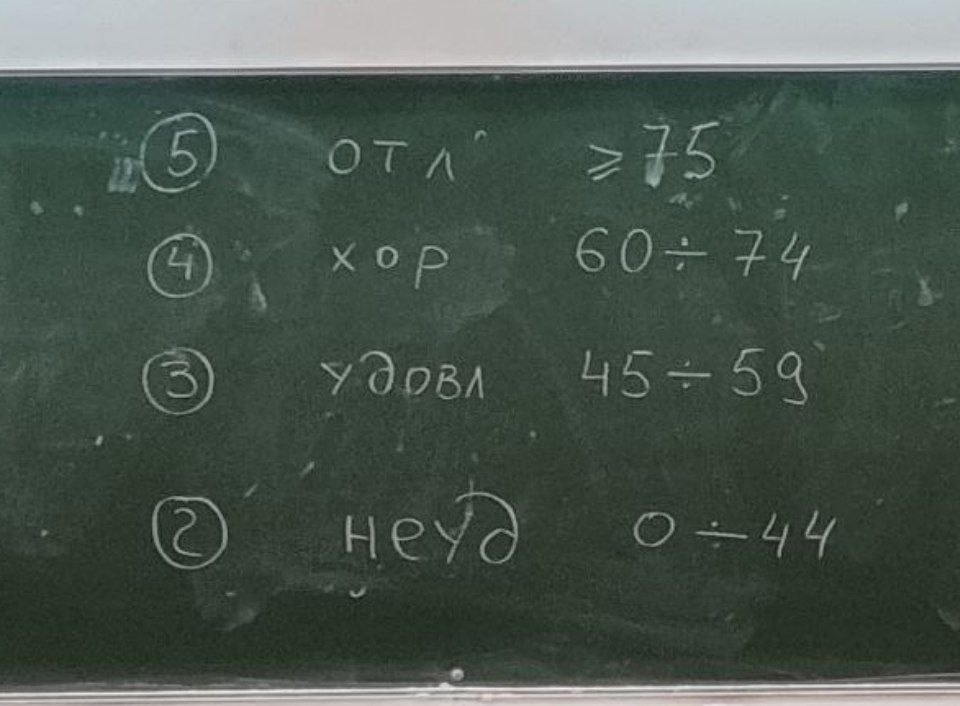 5 отл ≥ 75
4 хор 60 ÷ 74
3 удовл 45 ÷ 59
2 неуд 0 ÷ 44